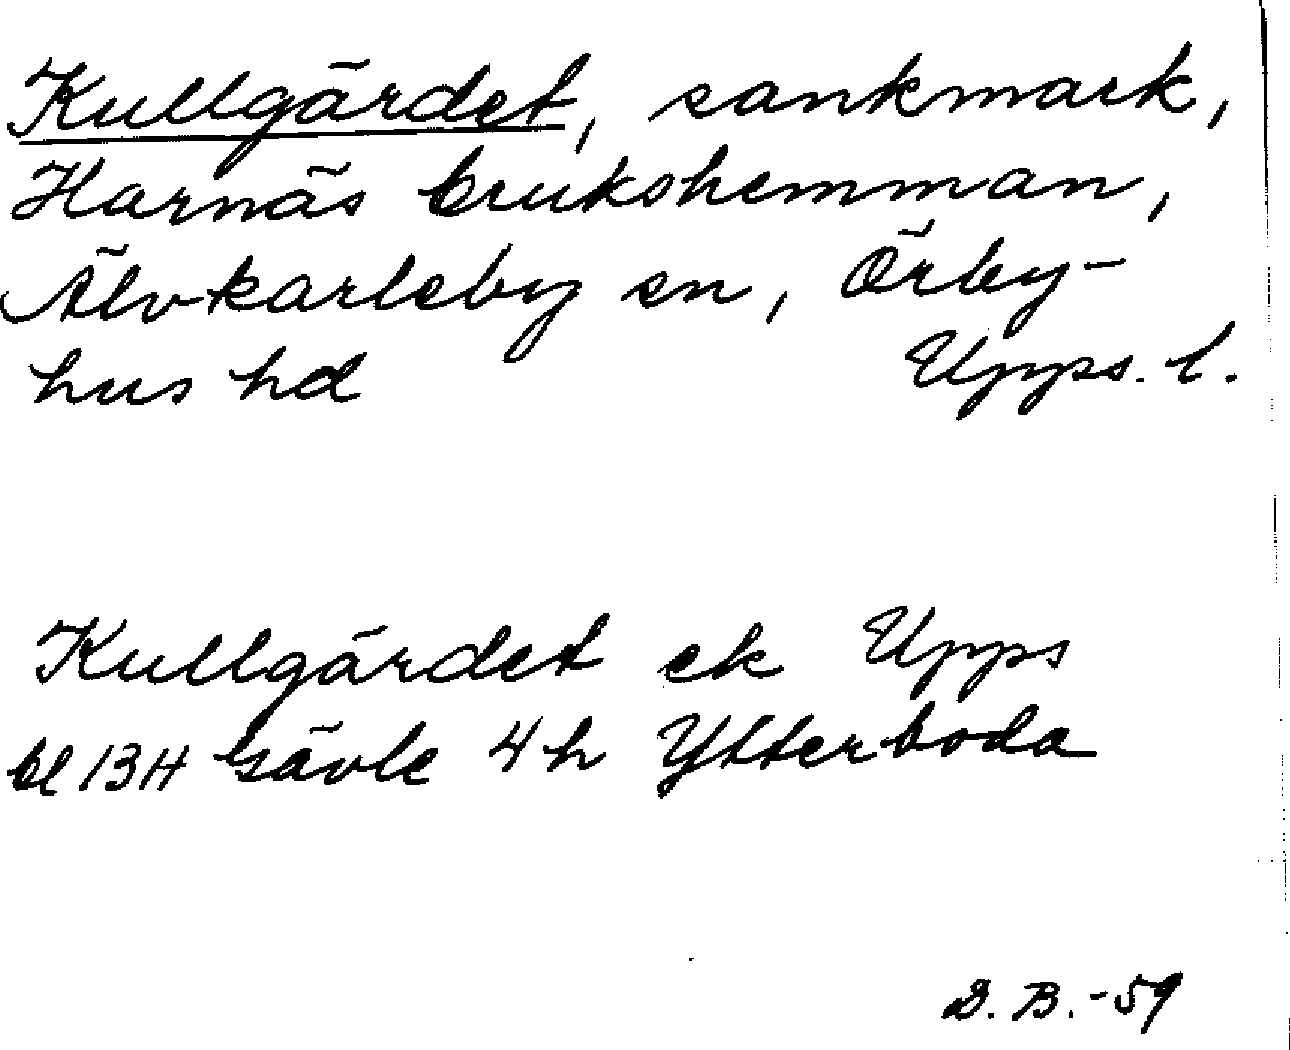 Kullgärdet, sankmark,
Harnäs brukshemman,
Älvkarleby sn, Örby-
hus hd Upps. l.
Kullgärdet ek Upps
bl 13H Gävle 4h Ytterboda
D. B. -59